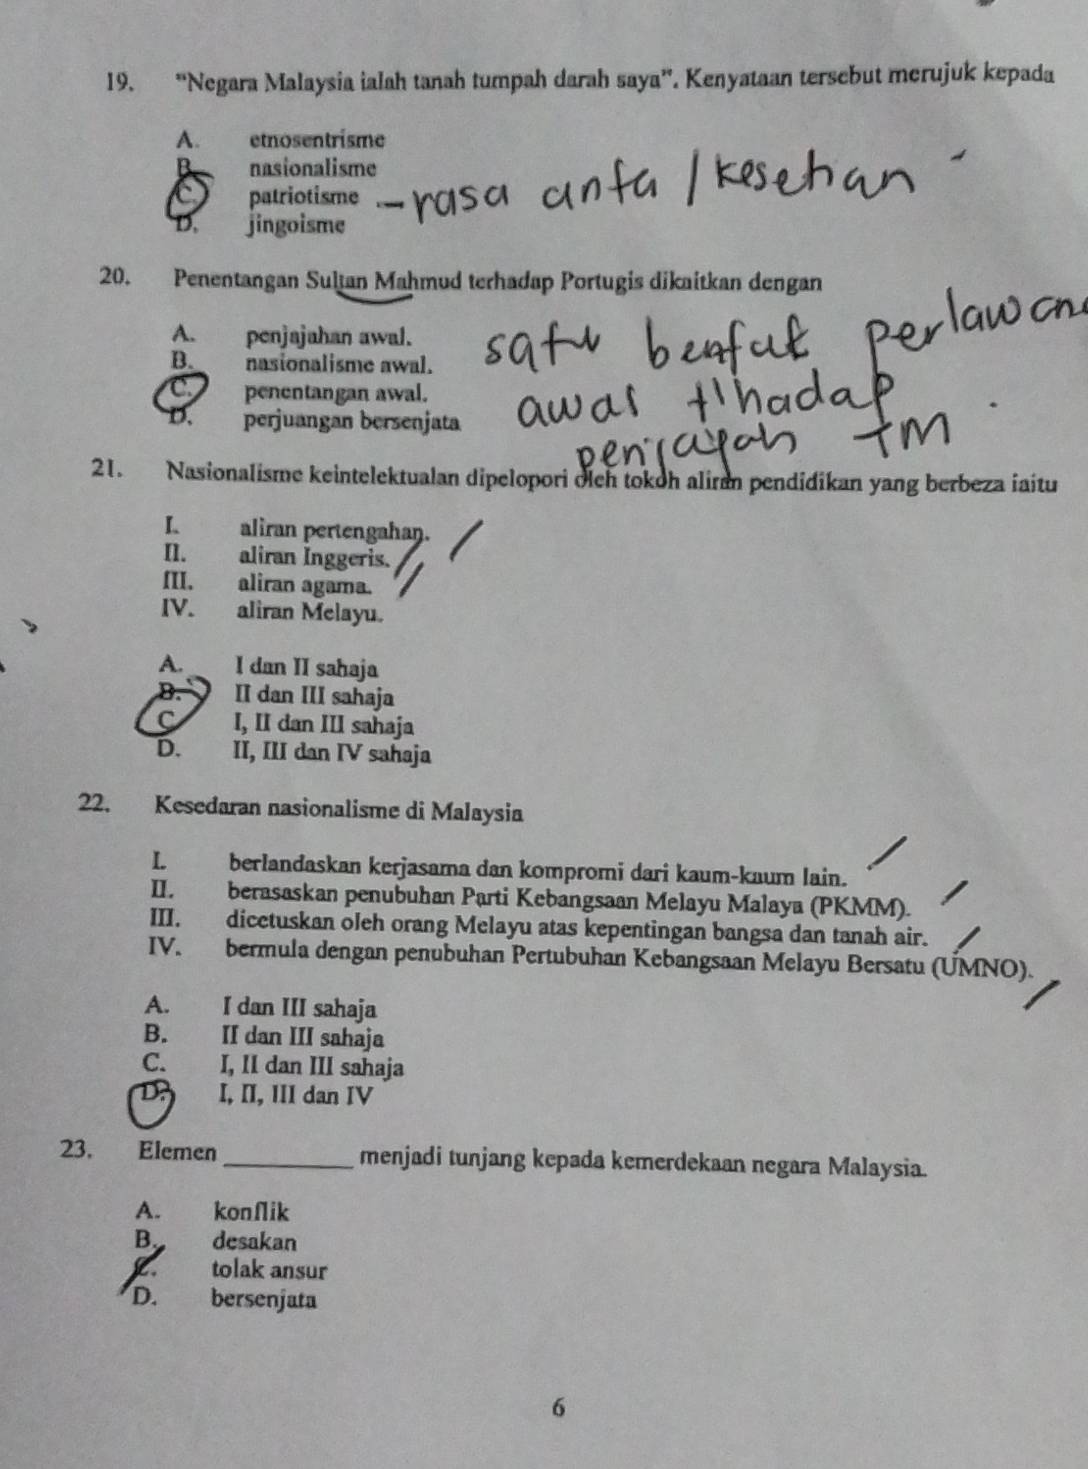 19. "Negara Malaysia ialah tanah tumpah darah saya". Kenyataan tersebut merujuk kepada
A. etnosentrisme
B. nasionalisme
C. patriotisme - rasa cinta / kesetian
D. jingoisme
20. Penentangan Sultan Mahmud terhadap Portugis dikaitkan dengan
A. penjajahan awal.
B. nasionalisme awal.
C. penentangan awal.
D. perjuangan bersenjata
satu bentuk perlawana
awal t'hadap
penjajah TM
21. Nasionalisme keintelektualan dipelopori oleh tokoh aliran pendidikan yang berbeza iaitu
I. aliran pertengahan.
II. aliran Inggeris.
III. aliran agama.
IV. aliran Melayu.
A. I dan II sahaja
B. II dan III sahaja
C I, II dan III sahaja
D. II, III dan IV sahaja
22. Kesedaran nasionalisme di Malaysia
I. berlandaskan kerjasama dan kompromi dari kaum-kaum lain.
II. berasaskan penubuhan Parti Kebangsaan Melayu Malaya (PKMM).
III. dicetuskan oleh orang Melayu atas kepentingan bangsa dan tanah air.
IV. bermula dengan penubuhan Pertubuhan Kebangsaan Melayu Bersatu (UMNO).
A. I dan III sahaja
B. II dan III sahaja
C. I, II dan III sahaja
D. I, II, III dan IV
23. Elemen __________ menjadi tunjang kepada kemerdekaan negara Malaysia.
A. konflik
B. desakan
C. tolak ansur
D. bersenjata
6